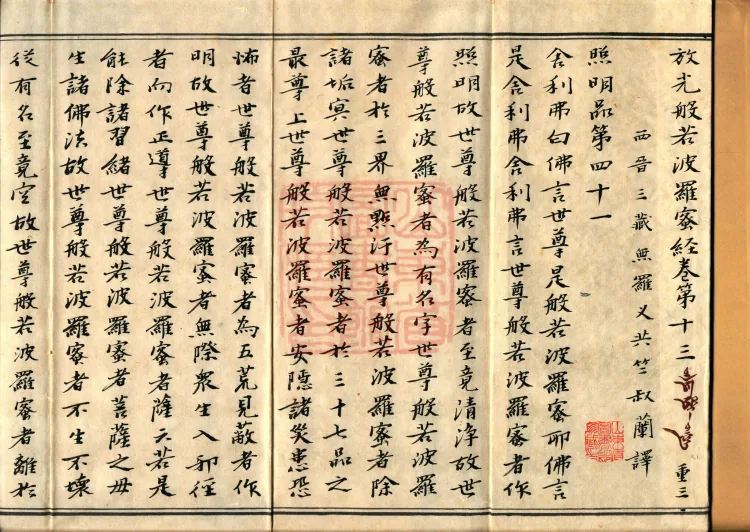 放光般若波羅蜜経巻第十三 重三
西晋三藏無羅叉共竺叔蘭譯
照明品第四十一
舎利弗白佛言世尊是般若波羅蜜耶佛言
是舎利弗舎利弗言世尊般若波羅蜜者作
照明故世尊般若波羅蜜者至竟清浄故世
尊般若波羅蜜者為有名字世尊般若波羅
蜜者於三界無點汙世尊般若波羅蜜者除
諸垢冥世尊般若波羅蜜者於三十七品之
最尊上世尊般若波羅蜜者安隠諸災患恐
怖者世尊般若波羅蜜者為五荒見蔽者作
明故世尊般若波羅蜜者無際衆生入邪徑
者而作正導世尊般若波羅蜜者薩云若是
能除諸習緒世尊般若波羅蜜者菩薩之母
生諸佛法故世尊般若波羅蜜者不生不壊
従有名至竟空故世尊般若波羅蜜者離於